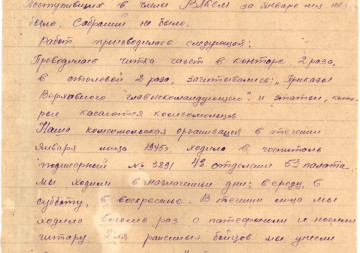 поступивших в члены ВЛКСМ за январь м-ц не
было. Собраний не было.
Работ производилось следующая:
Проводилась читка газет в конторе 2 раза,
в столовой 2 раза, зачитывались: „Приказы
Верховного главнокомандующего" и статьи, кото-
рые касаются комсомольцев
Наша комсомольская организация в течении
января м-ца 1945г. ходила в госпиталь
подшефный № 3891 отделение палата.
Мы ходили в назначенные дни: в среду, в
субботу, в воскресенье. В течении м-ца мы
ходили восемь раз с патефоном и носили
гитару. Для раненных бойцов мы